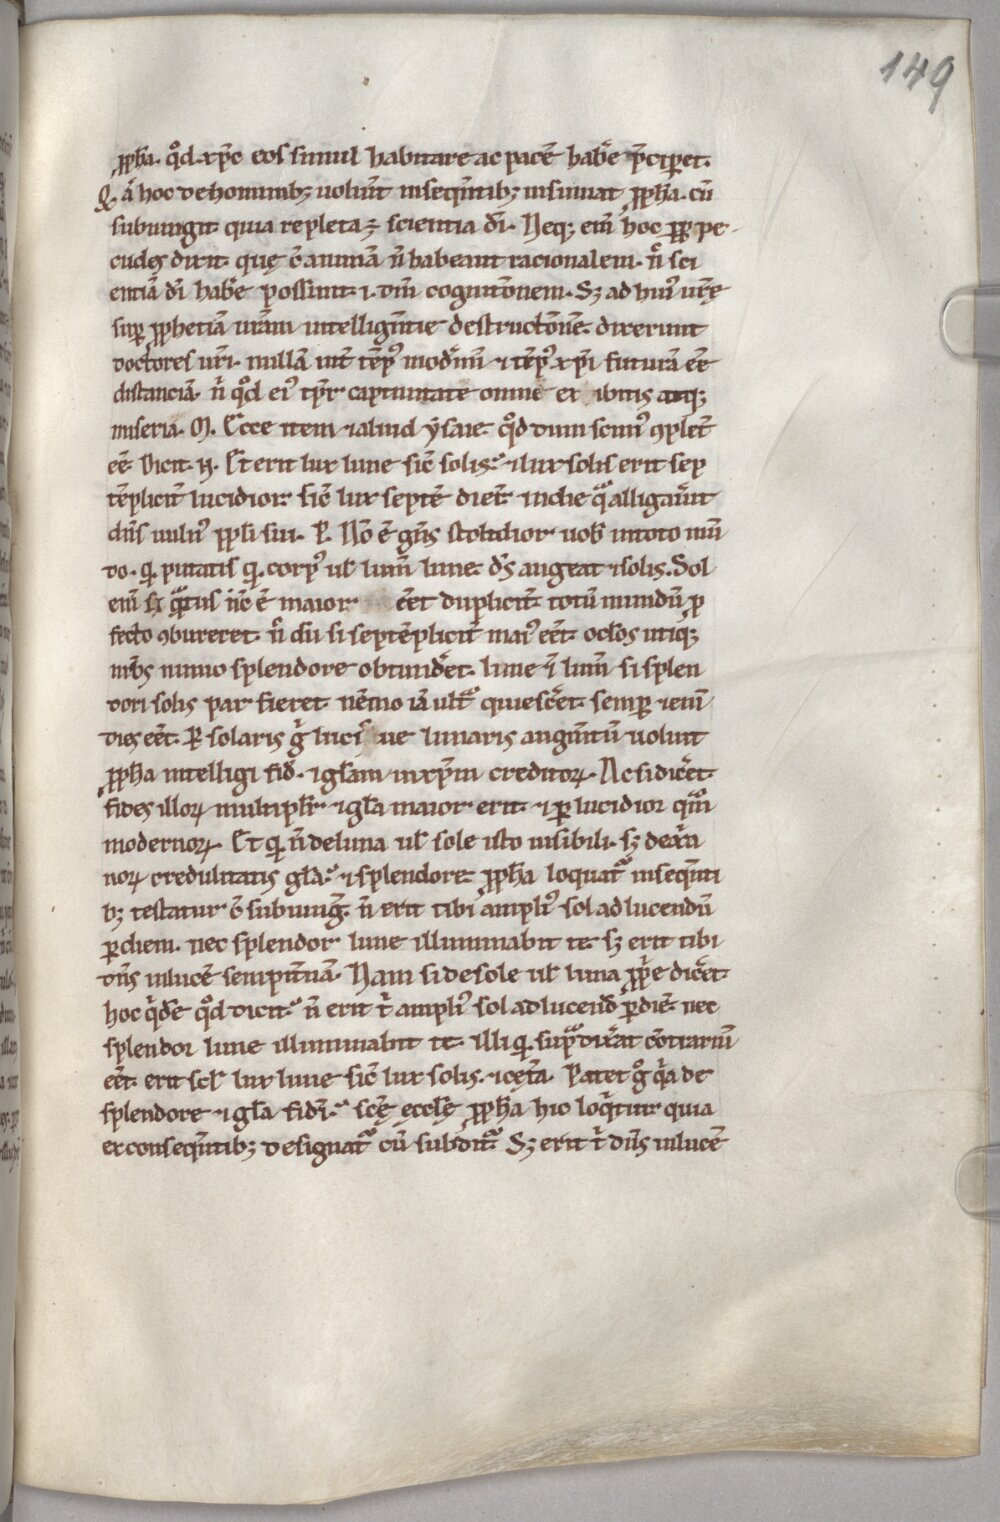 149
ꝓph̄a. qd̄. xp̄c eos simul habitare ac pacē hab̄e p̄cip̱et.
Q. ā hoc de hominibꝫ uolūit inseqūtibꝫ insinuat ꝓph̄a. cū
subiungit. quia repleta ē scientia dī. Neqꝫ eni̅ hoc ꝓp̱ pe-
cudes dixit. que c̄ animā n̄ habeant racionalem. n̄ sci
entiā dī hab̄e possunt. i. dn̄i cognitōnem. Sꝫ ad huiꝰ ur̄ę
sup̱ ꝓphetiā ur̄am intellign̄tie destructōne. dixerunt
doctores ur̄i. nullā int̄ tēpꝰ modn̄ū ⁊ tēpꝰ xp̄i futurā eē
distanciā. n̄ qd̄ eiꝰ tp̄r captiuitate omnē ex ibitis atqꝫ
miseria. M. Ecce item ⁊ aliud ysaie. qd̄ dum scimꝰ ꝯplet̄
eē. Dicit. N. Et erit lux lune sic̄ solis. ⁊ lux solis erit sep
tēplicit̄ lucidior sic̄ lux septē dierꝫ. in die q̄ alligau̅it
dn̄s uulnꝰ ꝓpl̄i sui. P. Nō ē gn̄s stolidior uob̄ in toto mū
do. qi putatis qi corpꝰ ul̄ lum̄ lune. ds̄ augeat ⁊ solis. Sol
eni̅ si q̄ntus n̄c ē maior eēt duplicit̄. totū mundū ꝓ
fecto ꝯbureret. n̄ dū si septēplicit̄ maiꝰ eēt. oclōs utiqꝫ
nr̄os nimio splendore obtundēt. lune ū lum̄ si splen
dori solis par fieret. nēmo iā ult̄ quiescēt. semp̱ ⁊ eni̅
dies eēt. P̱ solaris ḡ luci ue lunaris augm̄tū uoluit
ꝓph̄a intelligi fid̄. ⁊ gl̄am in xp̄m creditoꝝ. Ac si dic̄et.
fides illoꝝ multipl̄r ⁊ gl̄a maior erit. ⁊ p̱lucidior qm̄
modernoꝝ. Et qi n̄ de luna ul̄ sole isto uisibili. sꝫ de xp̄ia
noꝝ credulitatis gl̄a. ⁊ splendore. ꝓph̄a loquat̄ in seqn̄ti
bꝫ testatur c̄ subiungit̄. n̄ erit tibi ampliꝰ sol ad lucendū
p̱ diem. nec splendor lune illuminabit te. sꝫ erit tibi
dn̄s in lucē sempit̄nā. Nam si de sole ul̄ luna ꝓpe dic̄et
hoc qde̅ qd̄ dicit. n̄ erit t̄ ampliꝰ sol ad lucend̄ p̱ diē. nec
splendor lune illuminabit te. illi qi sup̄ dix̄at cōtrariū
eēt. erit scl̄ lux lune sic̄ lux solis. ⁊ cet̄a. Patet g̊ qa de
splendore ⁊ gl̄a fidī. scę̄ eccl̄ę ꝓph̄a hic loq̄tur quia
ex conseqūtibꝫ designat̄ cū subdit̄. Sꝫ erit t̄ dn̄s in lucē